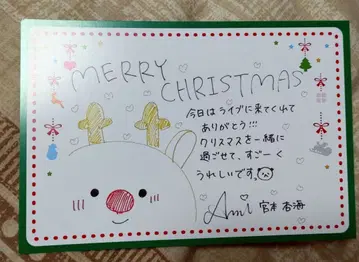 MERRY
CHRISTMAS
今日はライブに来てくれて
ありがとう!!!
クリスマスを一緒に
過ごせて、すごーく
うれしいです。
Ami 宮本杏海